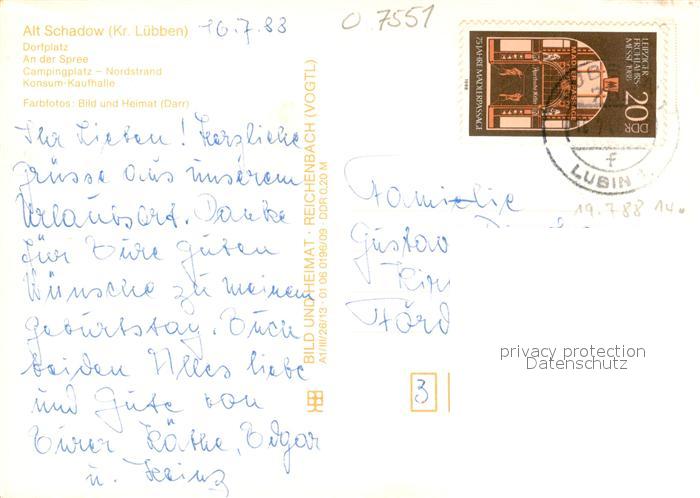 Alt Schadow (Kr. Lübben)
16.7.88
Dorfplatz
An der Spree
Campingplatz – Nordstrand
Konsum-Kaufhalle
Farbfotos: Bild und Heimat (Darr)
Ihr Lieben! Herzliche
Grüsse aus unserem
Urlaubsort. Danke
für Eure guten
Wünsche zu meinem
Geburtstag. Euch
beiden Alles liebe
und Gute von
Eurer Käthe, Edgar
u. Heinz
BILD UND HEIMAT · REICHENBACH (VOGTL)
A1/III/26/13 · 01 06 0196/09 · DDR 0,20 M
O 7551
LEIPZIGER
FRÜHJAHRS-
MESSE 1988
75 JAHRE MÄDLERPASSAGE
20
DDR
1988
f
LÜBBEN
19.7.88 14.
Familie
Gustav
3
privacy protection
Datenschutz